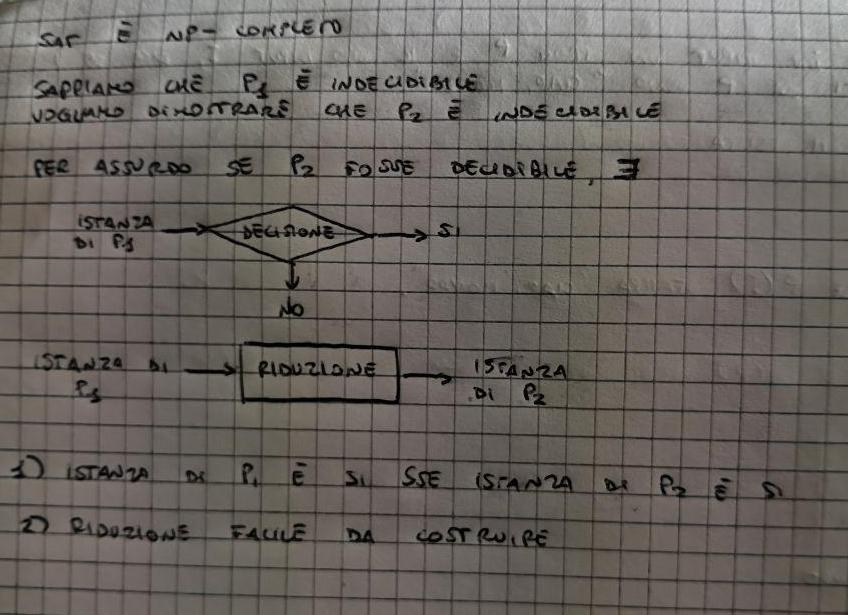 SAT È NP-COMPLETO
SAPPIAMO CHE P1 È INDECIDIBILE
VOGLIAMO DIMOSTRARE CHE P2 È INDECIDIBILE
PER ASSURDO SE P2 FOSSE DECIDIBILE, ∃
ISTANZA DI P1 → DECISIONE → SI
NO
ISTANZA DI P1 → RIDUZIONE → ISTANZA DI P2
1) ISTANZA DI P1 È SI SSE ISTANZA DI P2 È SI
2) RIDUZIONE FACILE DA COSTRUIRE